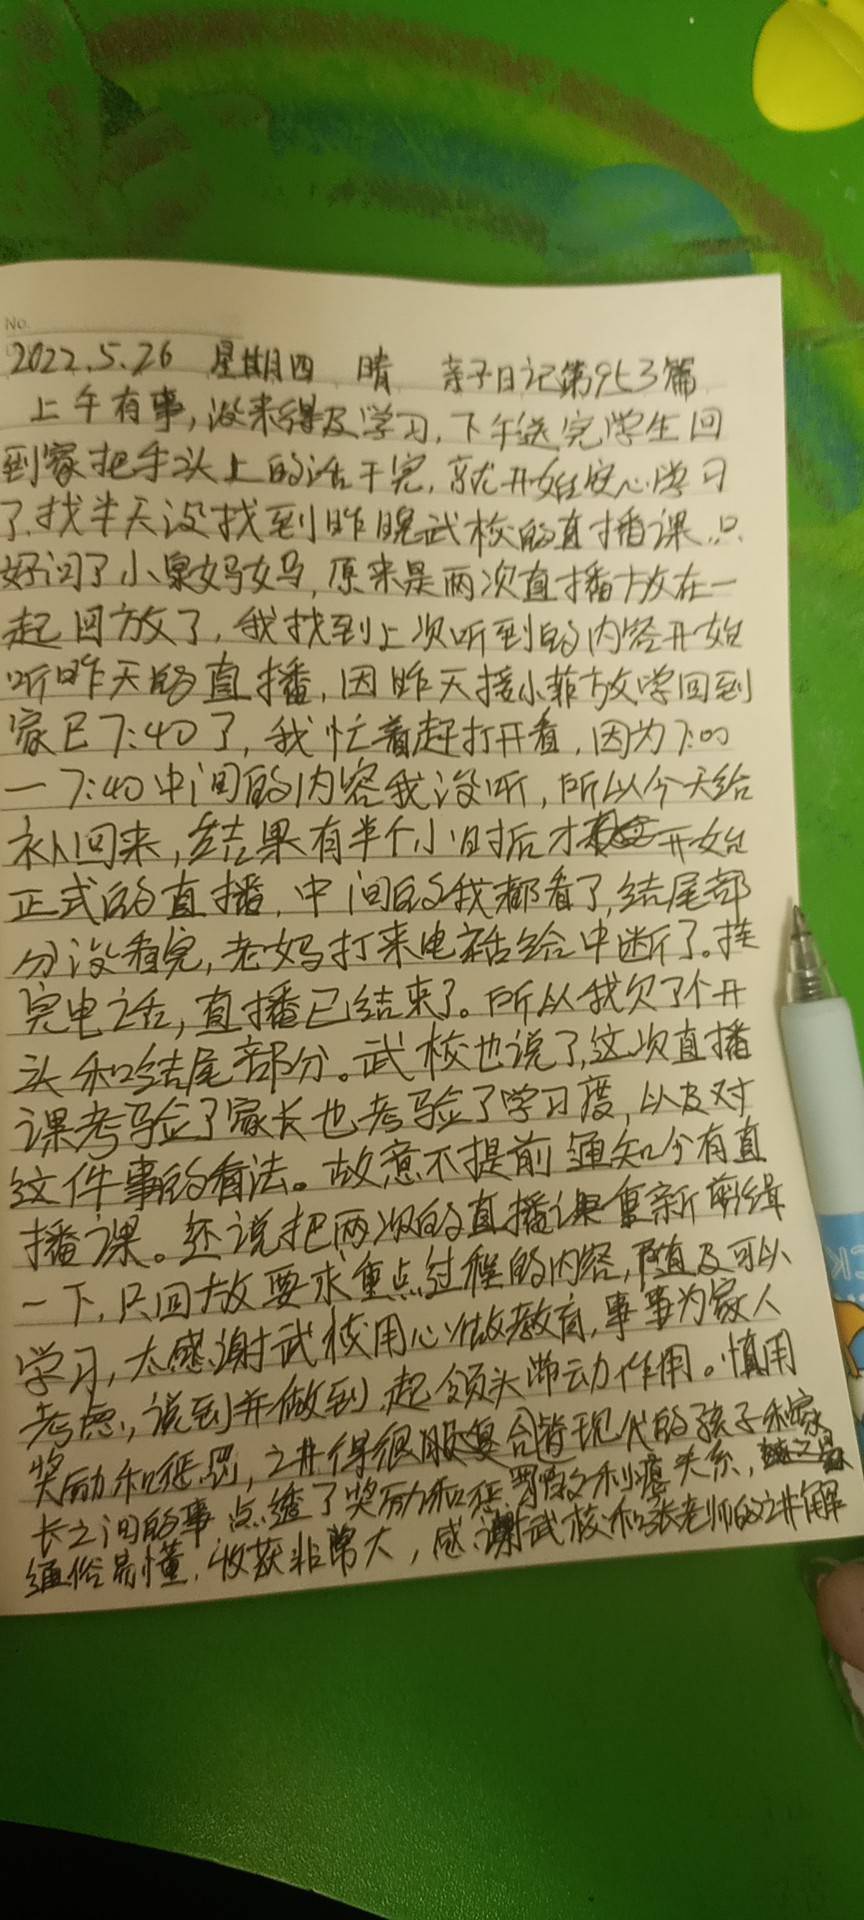 No.
2022.5.26 星期四 晴 亲子日记第953篇
上午有事,没来得及学习,下午送完学生回
到家把手头上的活干完,就开始安心学习
了.找半天没找到昨晚武校的直播课.只
好问了小泉妈妈,原来是两次直播放在一
起回放了,我找到上次听到的内容开始
听昨天的直播,因昨天接小菲放学回到
家已7:40了,我忙着赶打开看,因为7:00
一7:40中间的内容我没听,所以今天给
补回来,结果有半个小时后才开始
正式的直播,中间的我都看了,结尾部
分没看完,老妈打来电话给中断了。挂
完电话,直播已结束了。所以我欠了个开
头和结尾部分。武校也说了,这次直播
课考验了家长也考验了学习度,以及对
这件事的看法。故意不提前通知今有直
播课。还说把两次的直播课重新剪辑
一下,只回放要求重点过程的内容,随及可以
学习,太感谢武校用心做教育,事事为家人
考虑,说到并做到,起领头带动作用。慎用
奖励和惩罚,讲得很服复合皆现代的孩子和家
长之间的事,点透了奖励和惩罚的利 关系,
通俗易懂,收获非常大,感谢武校和张老师的讲解